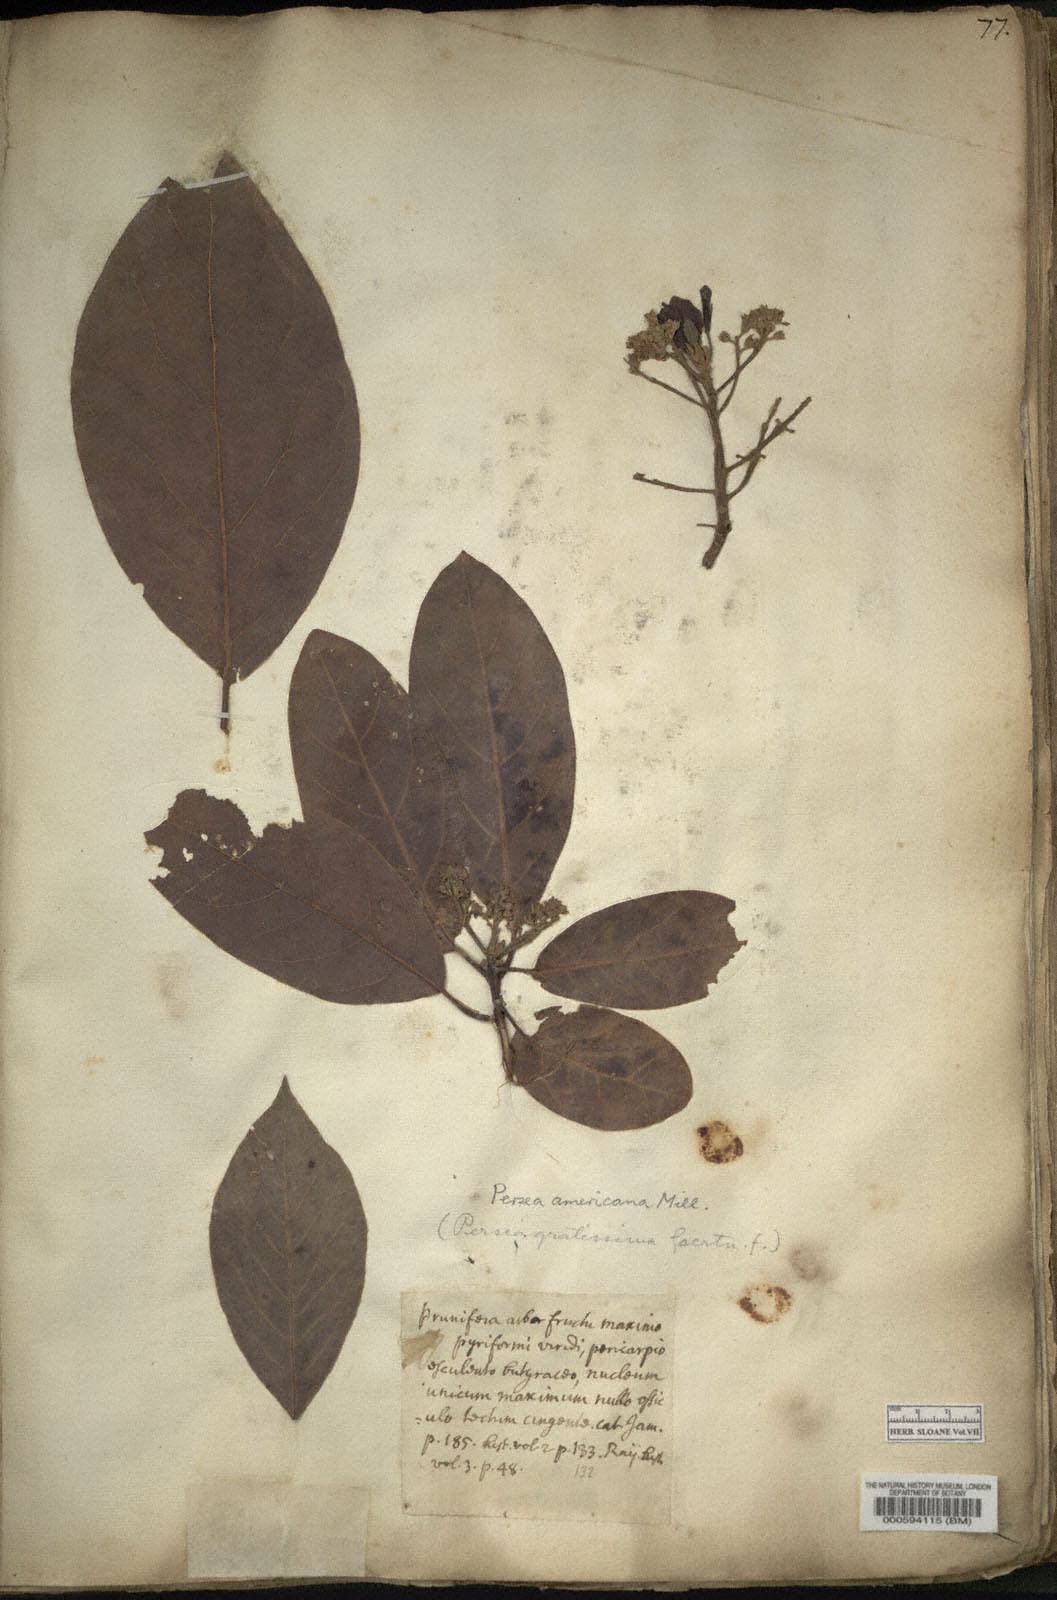 77.
Persea americana Mill.
(Persea gratissima Gaertn. f.)
Prunifera arbor fructu maximo
pyriformi viridi, pericarpio
esculento butyraceo, nucleum
unicum maximum nullo ossic
=ulo tectum cingente. cat. Jam.
p. 185. hist. vol 2 p. 133. Raij hist.
vol. 3. p. 48.
132
HERB. SLOANE Vol. VII
THE NATURAL HISTORY MUSEUM, LONDON
DEPARTMENT OF BOTANY
000594115 (BM)